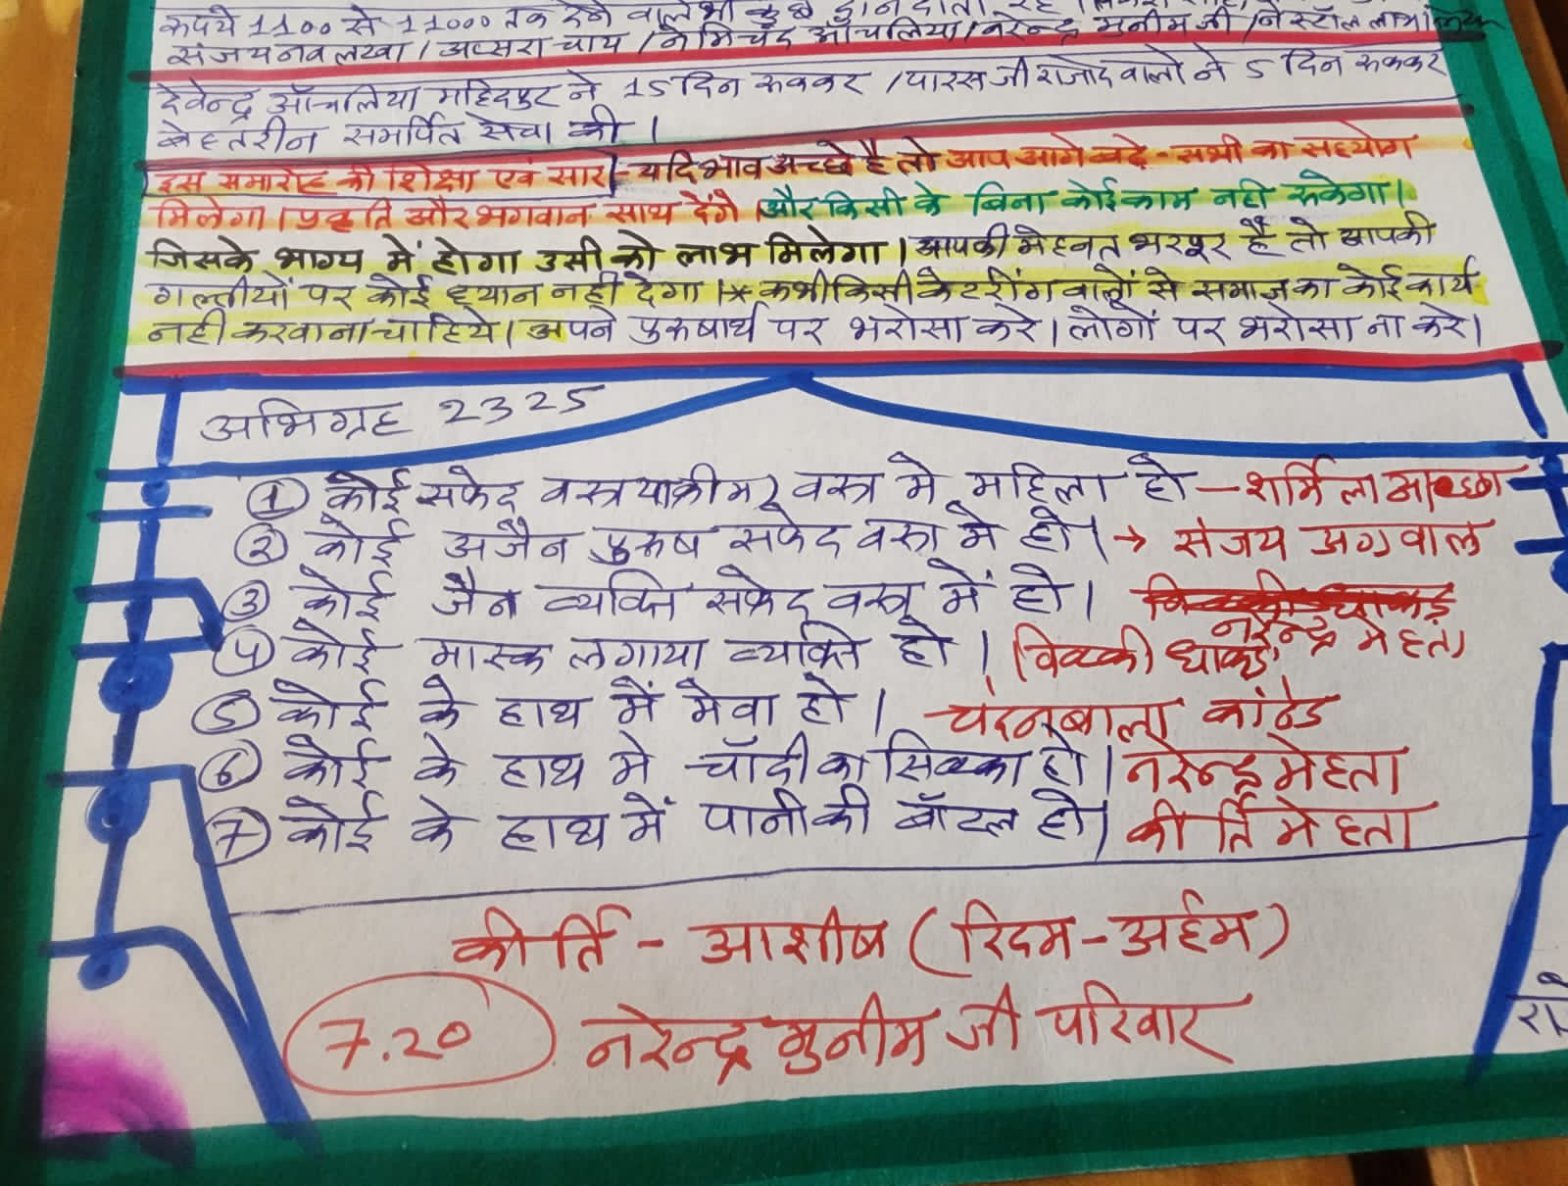 रुपये 1100 से 11000 तक देने वाले भी कुछ दान दाता रहे
संजय नवलखा / अप्सरा चाय / नेमिचंद आँचलिया / नरेन्द्र मुनीम जी / ने स्टॉल लाभ
देवेन्द्र आँचलिया महिदपुर ने 15 दिन रुककर / पारस जी राजोद वालो ने 5 दिन रुककर
बेहतरीन समर्पित सेवा की ।
इस समारोह की शिक्षा एवं सार - यदि भाव अच्छे है तो आप आगे बढे - सभी का सहयोग
मिलेगा । प्रकृति और भगवान साथ देंगे । और किसी के बिना कोई काम नही रुकेगा ।
जिसके भाग्य में होगा उसी को लाभ मिलेगा । आपकी मेहनत भरपूर है तो आपकी
गल्तीयों पर कोई ध्यान नहीं देगा । * कभी किसी केटरींग वालों से समाज का कोई कार्य
नही करवाना चाहिये । अपने पुरुषार्थ पर भरोसा करे । लोगों पर भरोसा ना करे ।
अभिग्रह 2325
① कोई सफेद वस्त्र या क्रीम वस्त्र मे महिला हो - शर्मिला
② कोई अजैन पुरुष सफेद वस्त्र मे हो । → संजय अग्रवाल
③ कोई जैन व्यक्ति सफेद वस्त्र में हो । नरेन्द्र मेहता
④ कोई मास्क लगाया व्यक्ति हो । विक्की धाकड़
⑤ कोई के हाथ में मेवा हो । चंदनबाला कांठेड
⑥ कोई के हाथ मे चाँदी का सिक्का हो । नरेन्द्र मेहता
⑦ कोई के हाथ में पानी की बॉटल हो । कीर्ति मेहता
कीर्ति - आशीष ( रिदम - अर्हम )
7.20 नरेन्द्र मुनीम जी परिवार